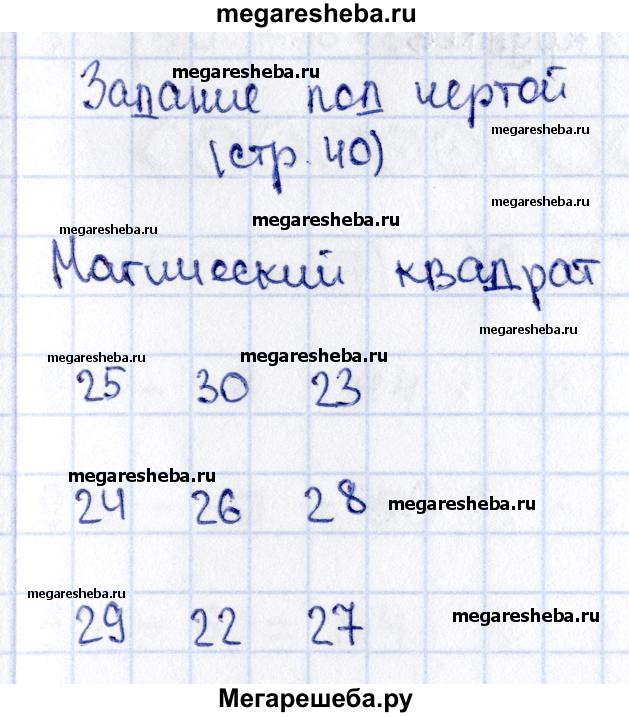 megaresheba.ru
megaresheba.ru
Задание под чертой
megaresheba.ru
(стр. 40)
megaresheba.ru
megaresheba.ru
megaresheba.ru
Магический квадрат
megaresheba.ru
megaresheba.ru
megaresheba.ru
25 30 23
megaresheba.ru
megaresheba.ru
24 26 28
megaresheba.ru
megaresheba.ru
29 22 27
Мегарешеба.ру